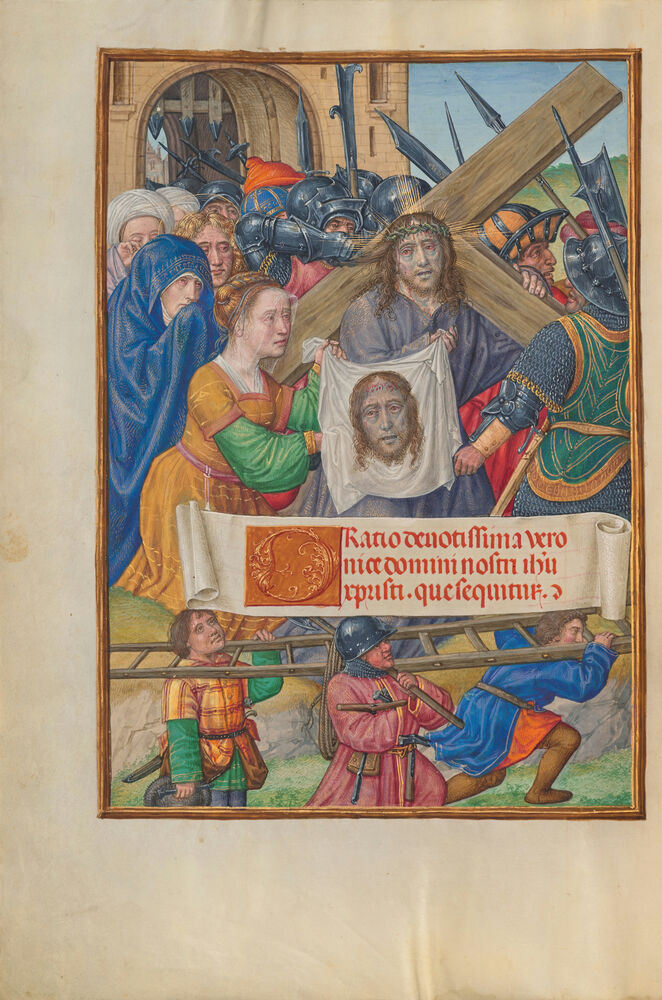 Oratio deuotissima vero
nice domini nostri ihu
xpristi . que sequitur .